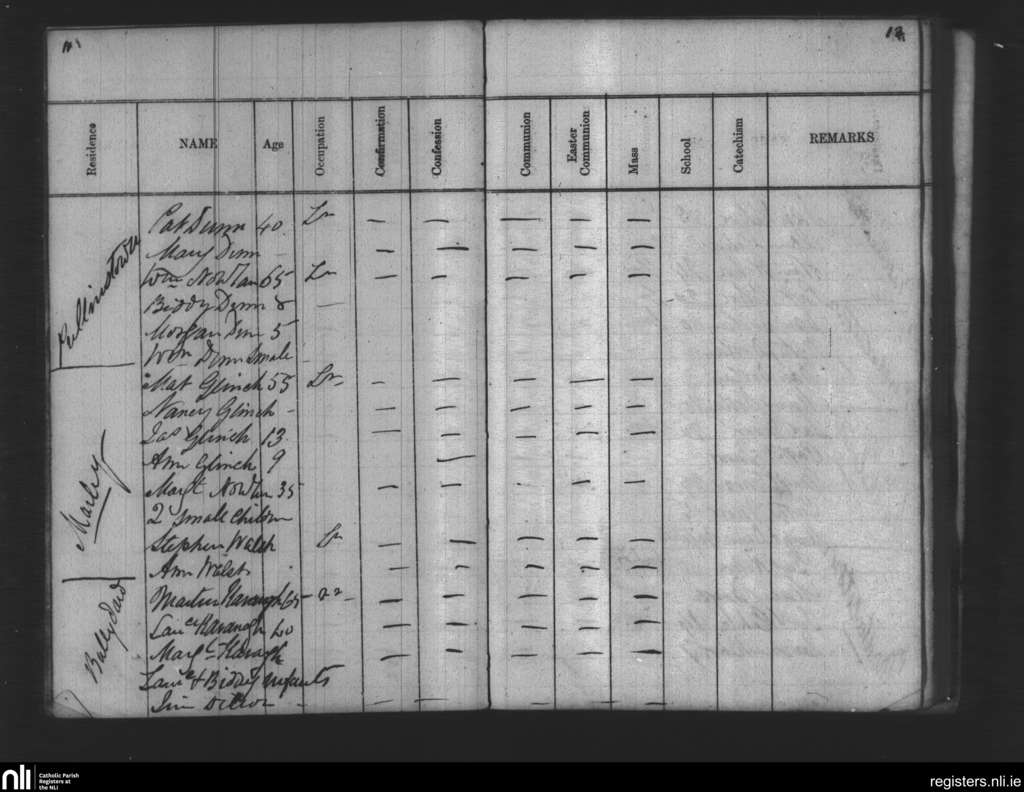 12
Residence NAME Age Occupation Confirmation Confession Communion Easter Communion Mass School Catechism REMARKS
Pat Dunn 40 Lr — — — — —
Mary Dinn — — — — —
Wm Nowlan 65 Lr — — — — —
Biddy Dinn 8 —
Morgan Dinn 5
Wm Dinn Small
Mat Glinch 55 Lr — — — — —
Nancy Glinch — — — — — —
Jas Glinch 13 — — — — —
Ann Glinch 9 —
Margt Nowlan 35 — — — —
2 Small Children
Marley
Stephen Walsh — — — — —
Ann Walsh — — — — —
Martin Kavanagh 65 — — — — —
Laurce Kavanagh 40 — — — — —
Margt Kavagh — — — — —
Laurce & Biddy infants
Ballydard
nli Catholic Parish
Registers at
the NLI
registers.nli.ie